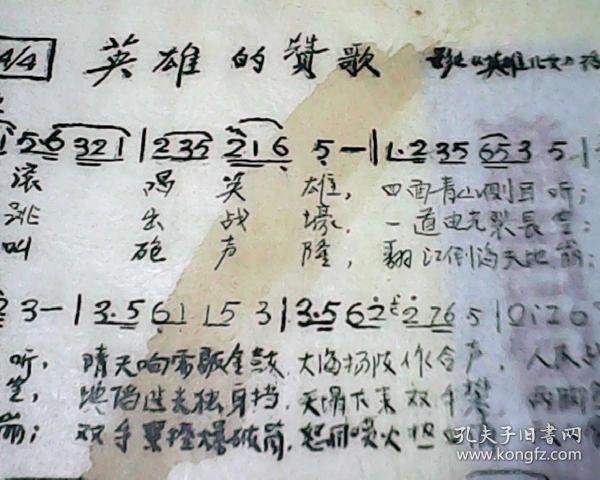 4/4 英雄的赞歌 《英雄儿女》
1 5 6 3 2 1 | 2 3 5 2 1 6 5 — | 1. 2 3 5 6 5 3 5 |
滚 唱英雄，四面青山侧耳听；
跳 出战壕，一道电光裂长空；
叫 砲声隆，翻江倒海天地崩；
2 3 — | 3. 5 6 1 1 5 3 | 3. 5 6 2 2 7 6 5 |
听，晴天响雷敲金鼓，大海扬波作合声，人民
空，地陷进去独身挡，天塌下来双手擎，两脚
崩；双手紧握爆破筒，怒目喷火
孔夫子旧书网
www.kongfz.com